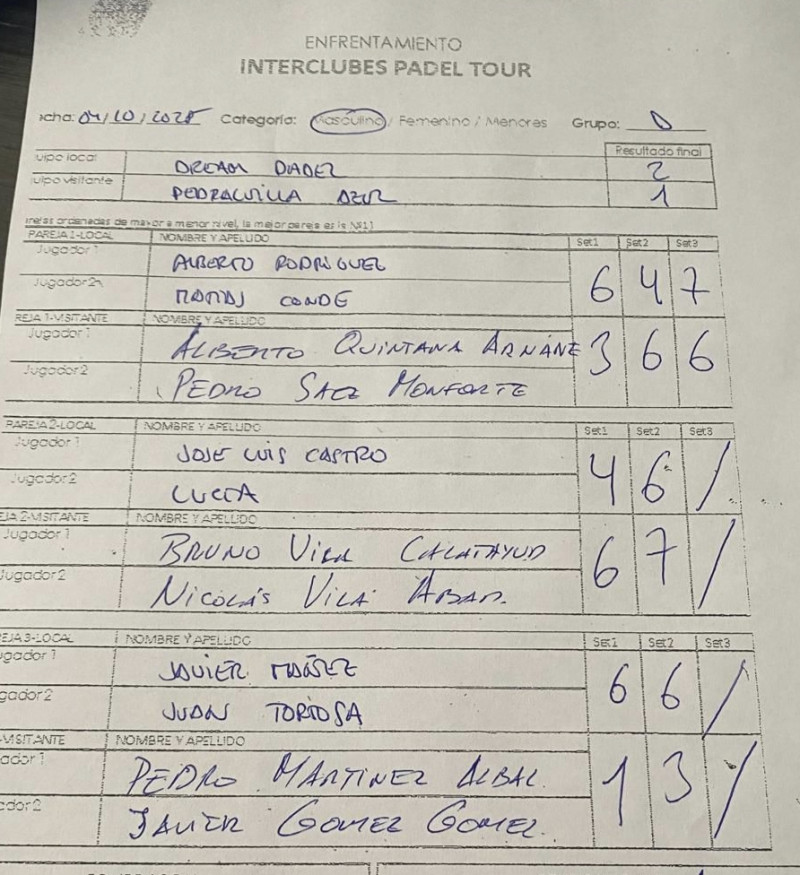 ENFRENTAMIENTO
INTERCLUBES PADEL TOUR
cha: 04/10/2025 Categoría: Masculino / Femenino / Menores Grupo: D
uipo local DREAM PADEL Resultado final 2
uipo visitante PEDRALVILLA AZUL 1
rejas ordenadas de mayor a menor nivel, la mejor pareja es la Nº1)
PAREJA 1-LOCAL NOMBRE Y APELLIDO Set1 Set2 Set3
Jugador 1 ALBERTO RODRIGUEZ 6 4 7
Jugador 2 CONDE
REJA 1-VISITANTE NOMBRE Y APELLIDO
Jugador 1 ALBERTO QUINTANA ARNÁNE 3 6 6
Jugador 2 PEDRO SAEZ MONFORTE
PAREJA 2-LOCAL NOMBRE Y APELLIDO Set1 Set2 Set3
Jugador 1 JOSE LUIS CASTRO 4 6 /
Jugador 2
EJA 2-VISITANTE NOMBRE Y APELLIDO
Jugador 1 BRUNO VILA CALATAYUD 6 7 /
Jugador 2 NICOLÁS VILA ABAD.
EJA 3-LOCAL NOMBRE Y APELLIDO Set1 Set2 Set3
ugador 1 JAVIER MAÑEZ 6 6 /
ugador 2 JUAN TORTOSA
-VISITANTE NOMBRE Y APELLIDO
ador 1 PEDRO MARTINEZ ALBAL. 1 3 /
ador 2 JAVIER GOMEZ GOMEZ.